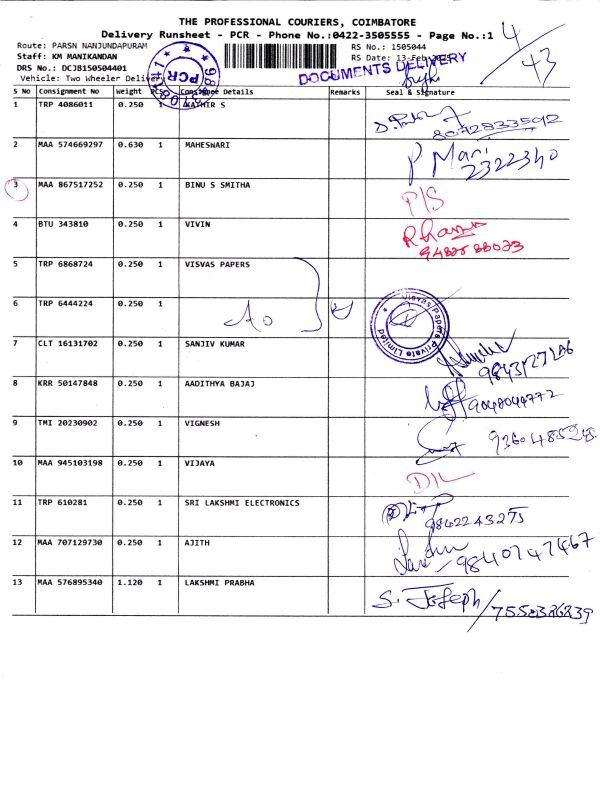 THE PROFESSIONAL COURIERS, COIMBATORE
Delivery Runsheet - PCR - Phone No.:0422-3505555 - Page No.:1
4/43
Route: PARSN NANJUNDAPURAM
RS No.: 1505044
Staff: KM MANIKANDAN
RS Date: 13-Feb
DRS No.: DCJB150504401
DOCUMENTS DELIVERY
Vehicle: Two Wheeler Deliver
PCR
S No Consignment No Weight PCS Consignee Details Remarks Seal & Signature
1 TRP 4086011 0.250 1 KATHIR S
8072833592
2 MAA 574669297 0.630 1 MAHESWARI P Mari
2322340
3 MAA 867517252 0.250 1 BINU S SMITHA P/S
4 BTU 343810 0.250 1 VIVIN
5 TRP 6868724 0.250 1 VISVAS PAPERS
6 TRP 6444224 0.250 1 Visvas Papers Private Limited
7 CLT 16131702 0.250 1 SANJIV KUMAR
8 KRR 50147848 0.250 1 AADITHYA BAJAJ
9048049772
9 TMI 20230902 0.250 1 VIGNESH
10 MAA 945103198 0.250 1 VIJAYA D/L
11 TRP 610281 0.250 1 SRI LAKSHMI ELECTRONICS
9842243275
12 MAA 707129730 0.250 1 AJITH
9840747467
13 MAA 576895340 1.120 1 LAKSHMI PRABHA S. Joseph/7558326239